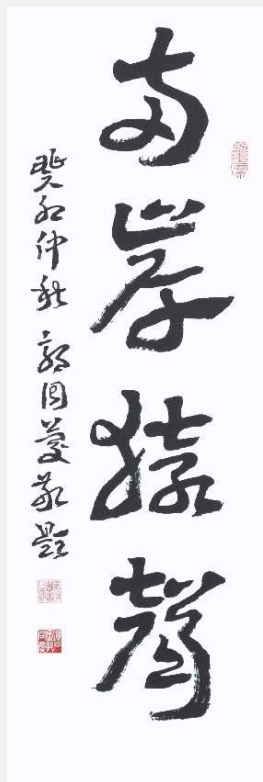 両岸猿聲
癸卯仲秋 郭同慶敬題